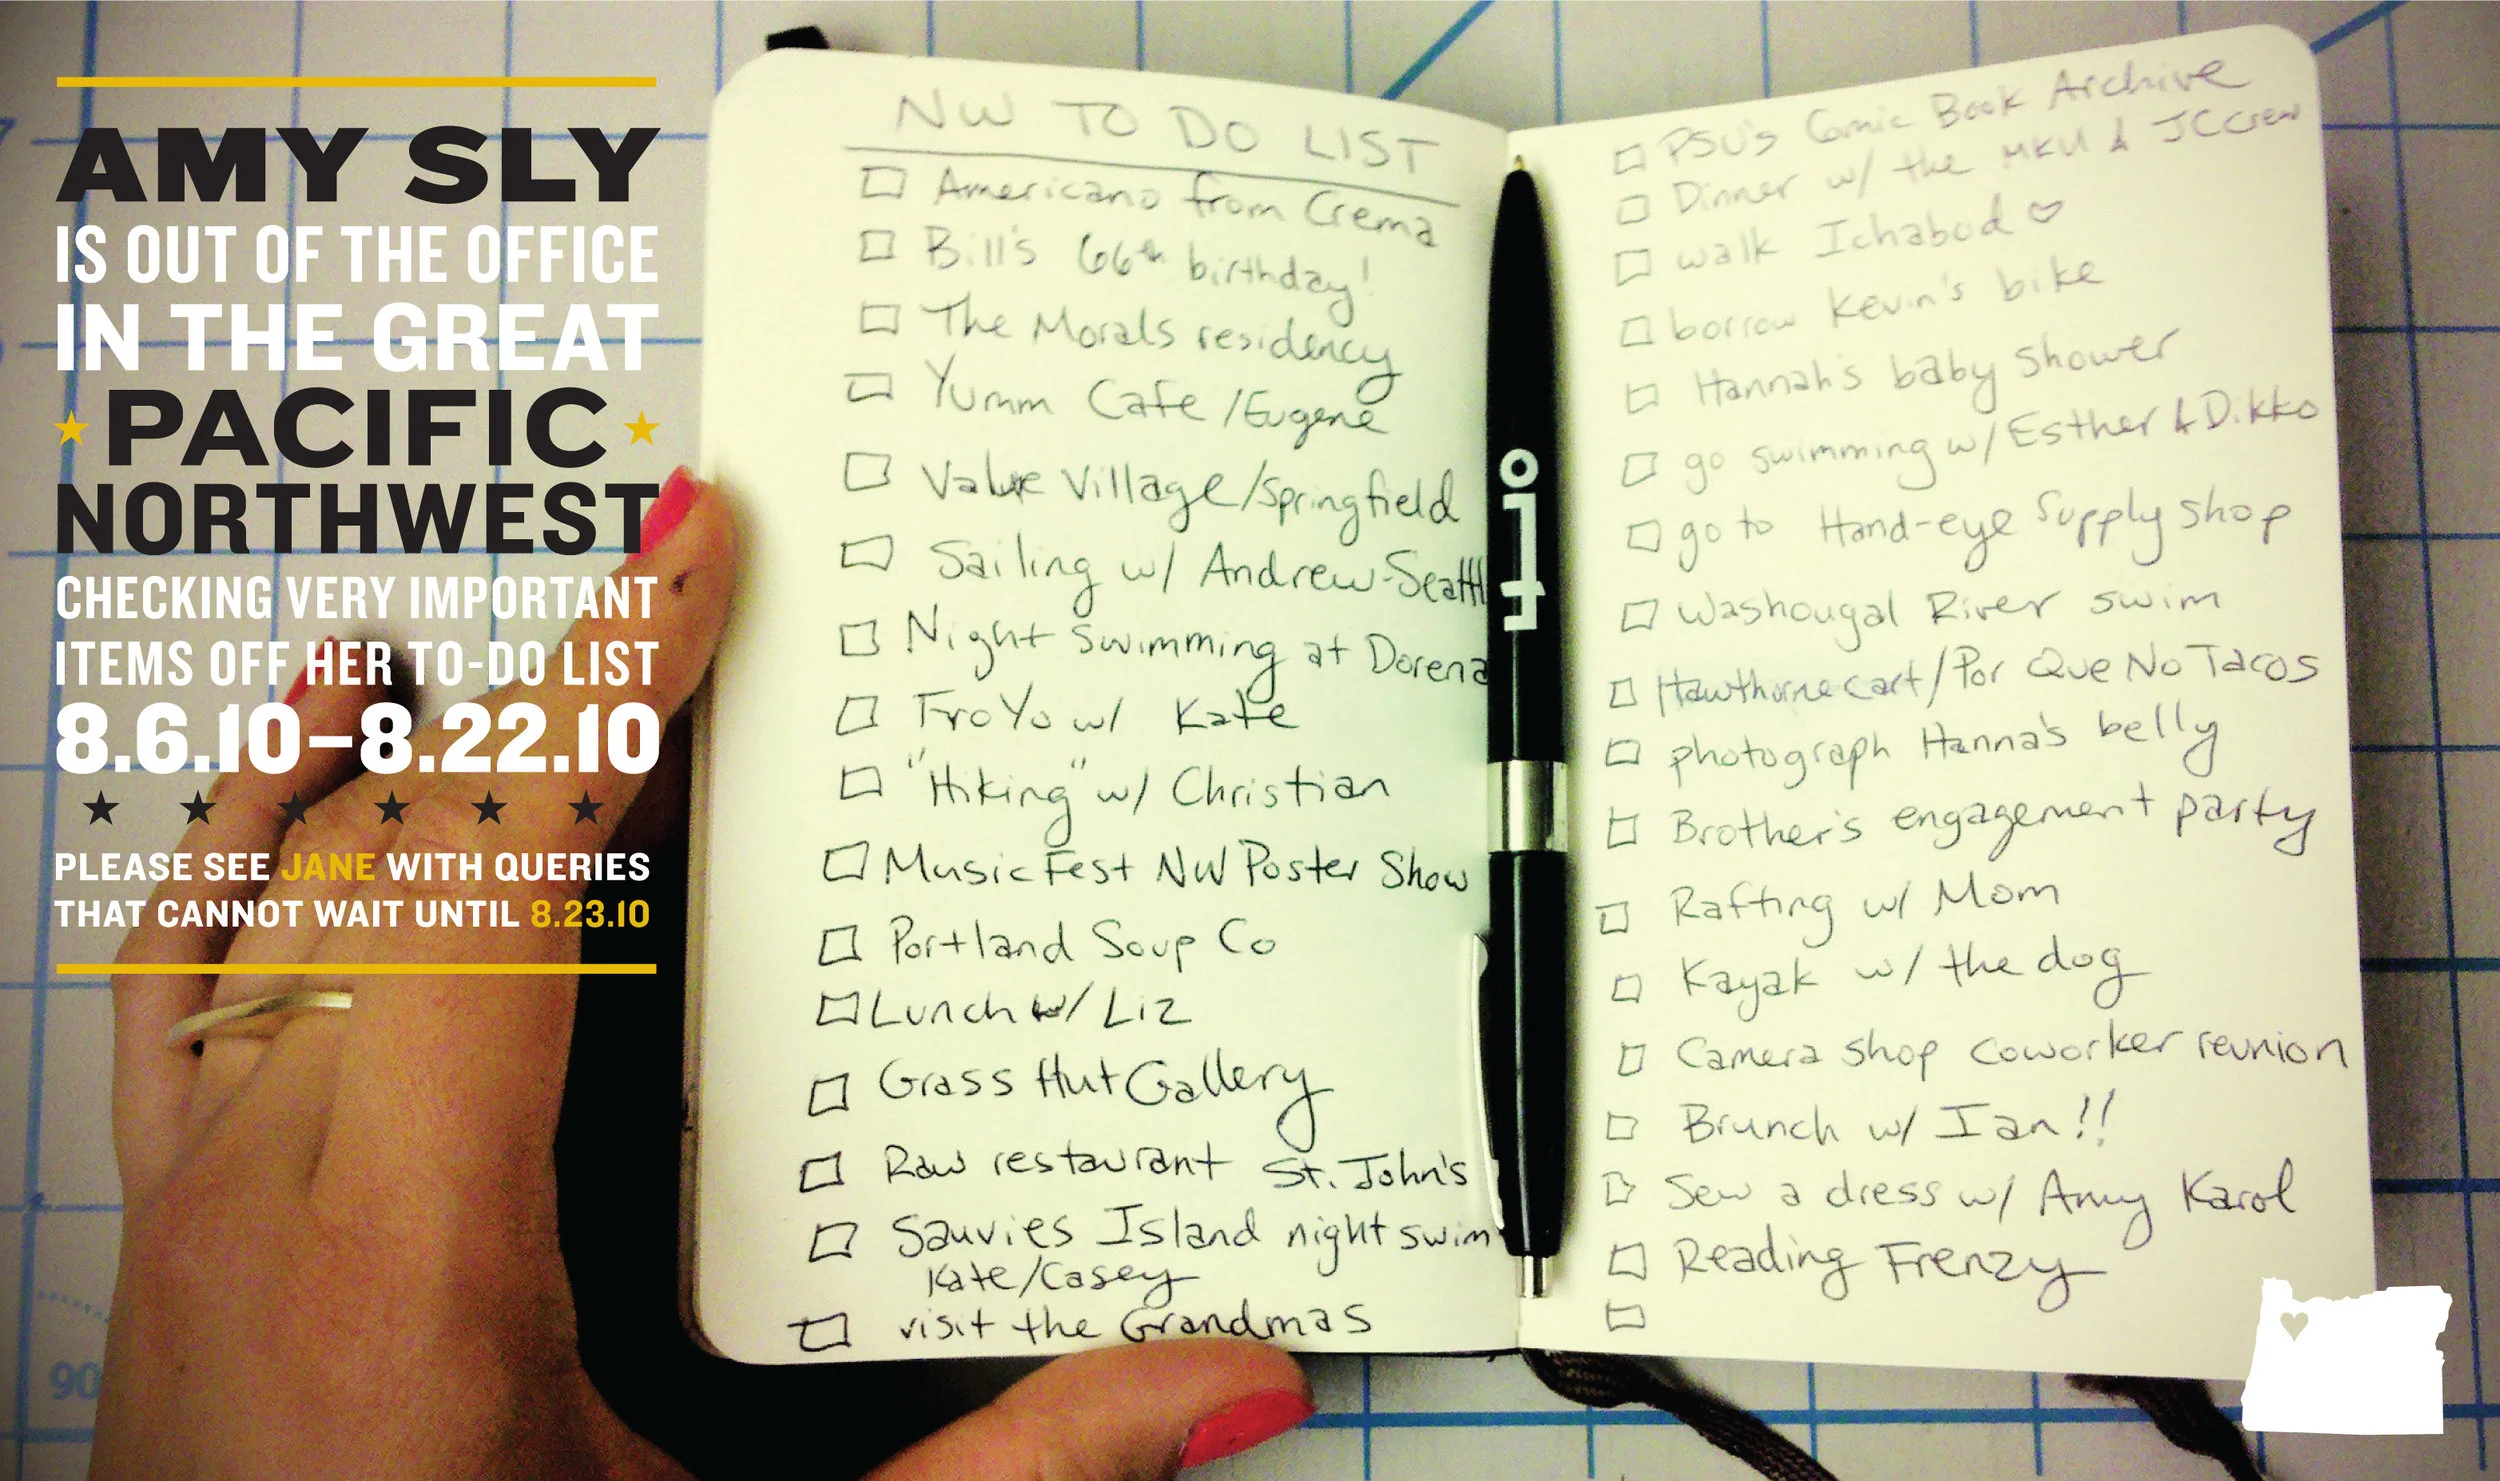 AMY SLY
IS OUT OF THE OFFICE
IN THE GREAT
PACIFIC
NORTHWEST
CHECKING VERY IMPORTANT
ITEMS OFF HER TO-DO LIST
8.6.10–8.22.10
PLEASE SEE JANE WITH QUERIES
THAT CANNOT WAIT UNTIL 8.23.10
NW TO DO LIST
Americano from Crema
Bill's 66th birthday!
The Morals residency
Yumm Cafe/Eugene
Value Village/Springfield
Sailing w/ Andrew-Seattl
Night swimming at Dorena
FroYo w/ Kate
"Hiking" w/ Christian
MusicFest NW Poster Show
Portland Soup Co
Lunch w/ Liz
Grass Hut Gallery
Raw restaurant St. John's
Sauvies Island night swim
Kate/Casey
visit the Grandmas
orlt
PSU's Comic Book Archive
Dinner w/ the MKU & JCCrew
walk Ichabod ♡
borrow Kevin's bike
Hannah's baby shower
go swimming w/ Esther & Dikko
go to Hand-eye Supply shop
Washougal River swim
Hawthorne cart/Por Que No Tacos
photograph Hanna's belly
Brother's engagement party
Rafting w/ Mom
Kayak w/ the dog
Camera shop coworker reunion
Brunch w/ Ian!!
Sew a dress w/ Amy Karol
Reading Frenzy
90